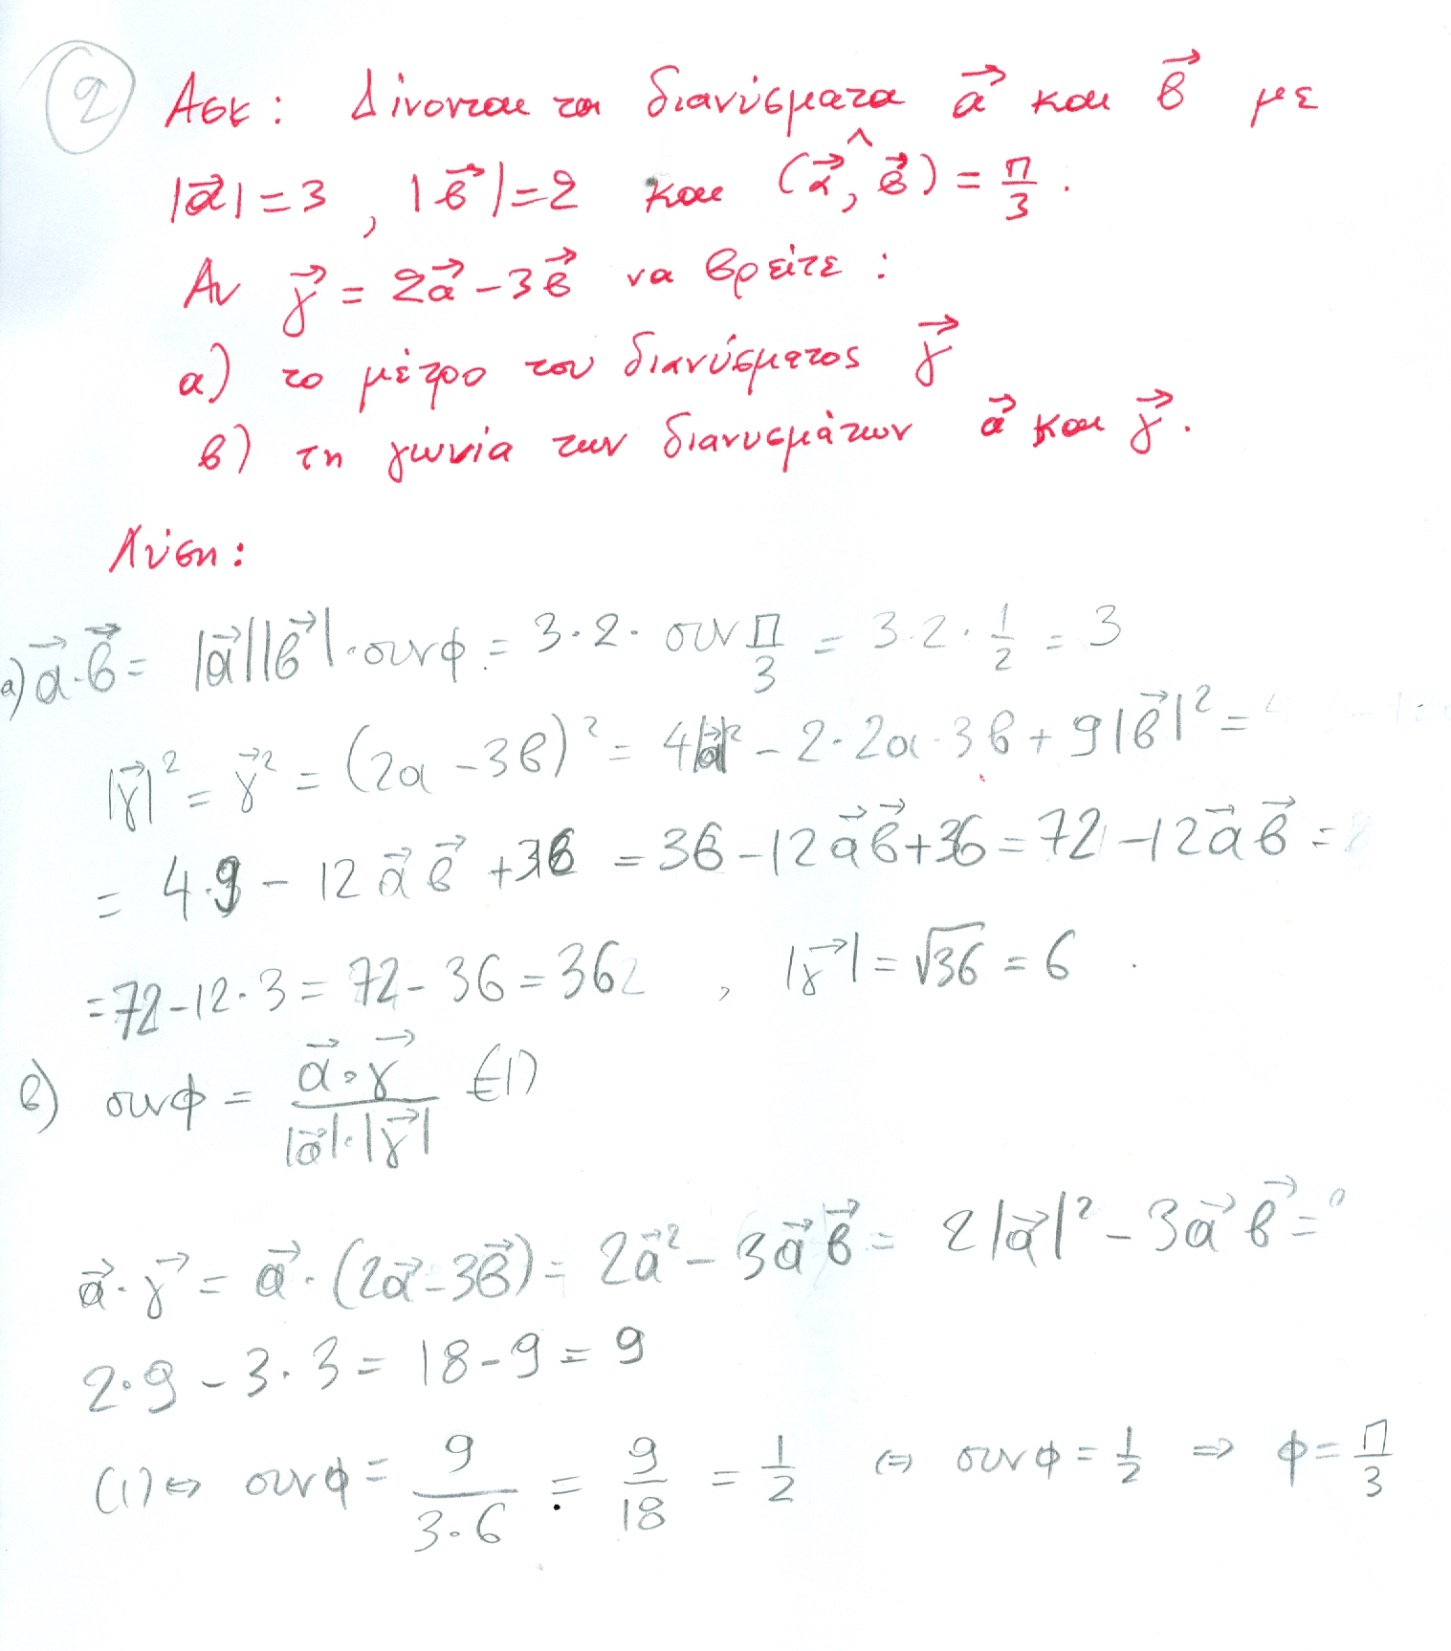 2
Ασκ: Δίνονται τα διανύσματα α⃗ και β⃗ με
|α⃗|=3, |β⃗|=2 και (α⃗,^β⃗)=π/3.
Αν γ⃗=2α⃗-3β⃗ να βρείτε:
α) το μέτρο του διανύσματος γ⃗
β) τη γωνία των διανυσμάτων α⃗ και γ⃗.
Λύση:
α) α⃗·β⃗= |α⃗||β⃗|·συνφ=3·2·συν π/3 = 3·2·1/2 = 3
|γ⃗|² = γ⃗² = (2α-3β)² = 4|α⃗|² - 2·2α·3β + 9|β⃗|² =
= 4·9 - 12α⃗β⃗ +36 = 36-12α⃗β⃗+36=72-12α⃗β⃗=
=72-12·3=72-36=36, |γ⃗|=√36=6
β) συνφ = α⃗·γ⃗/|α⃗|·|γ⃗| (1)
α⃗·γ⃗ = α⃗·(2α⃗-3β⃗)=2α⃗²-3α⃗β⃗= 2|α⃗|²-3α⃗β⃗=
2·9-3·3=18-9=9
(1)⇔ συνφ= 9/3·6 = 9/18 = 1/2 ⇔ συνφ=1/2 ⇒ φ=π/3